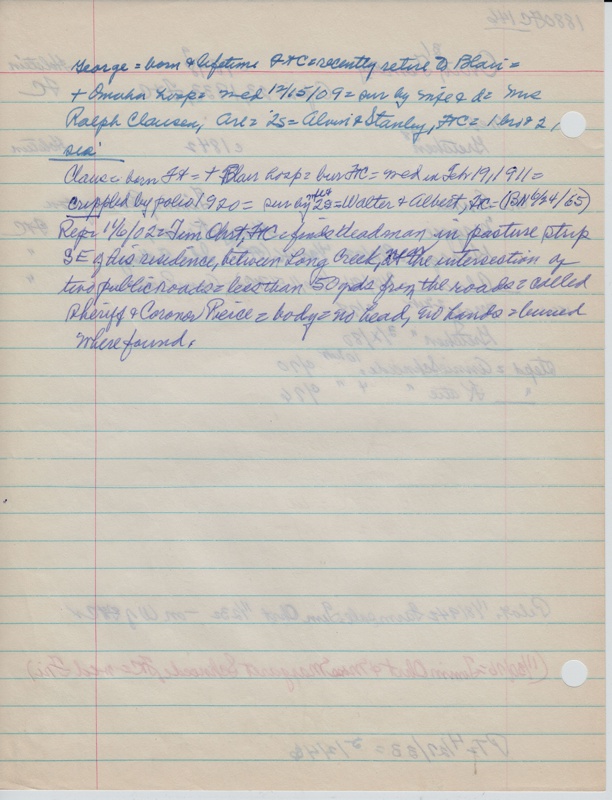 George = born & lifetime FtC = recently retire to Blair =
+ Omaha hosp = med 12/15/09 = sur by wife & d = Mrs
Ralph Clausen, Arl = 2s = Alvin & Stanley, FtC = 1 bro & 2
sis
Claus = born Ft = + Blair hosp = bur FtC = med in Feb 19, 1911 =
crippled by polio 1920 = sur by 2s = Walter & Albert, FtC = (BN 6/24/65)
Rep = 11/6/02 = Tim Ohrt, FtC = finds dead man in pasture strip
SE of his residence, between Long Creek, & the intersection of
two public roads = less than 50 yds from the roads = called
Sheriff & Coroner Pierce = body = no head, no hands = buried
where found.